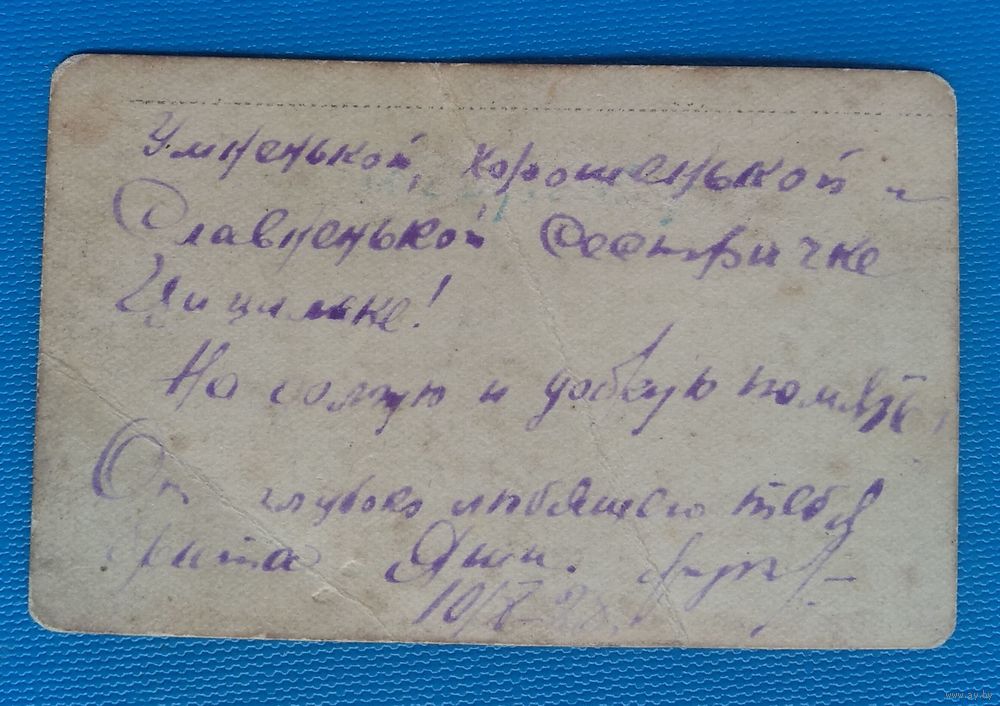 Умненькой, хорошенькой и
Славненькой Сестричке
Цицильке!
На долгую и добрую память,
От глубоко любящего тебя
брата Яши.
10/X-28.
www.ay.by